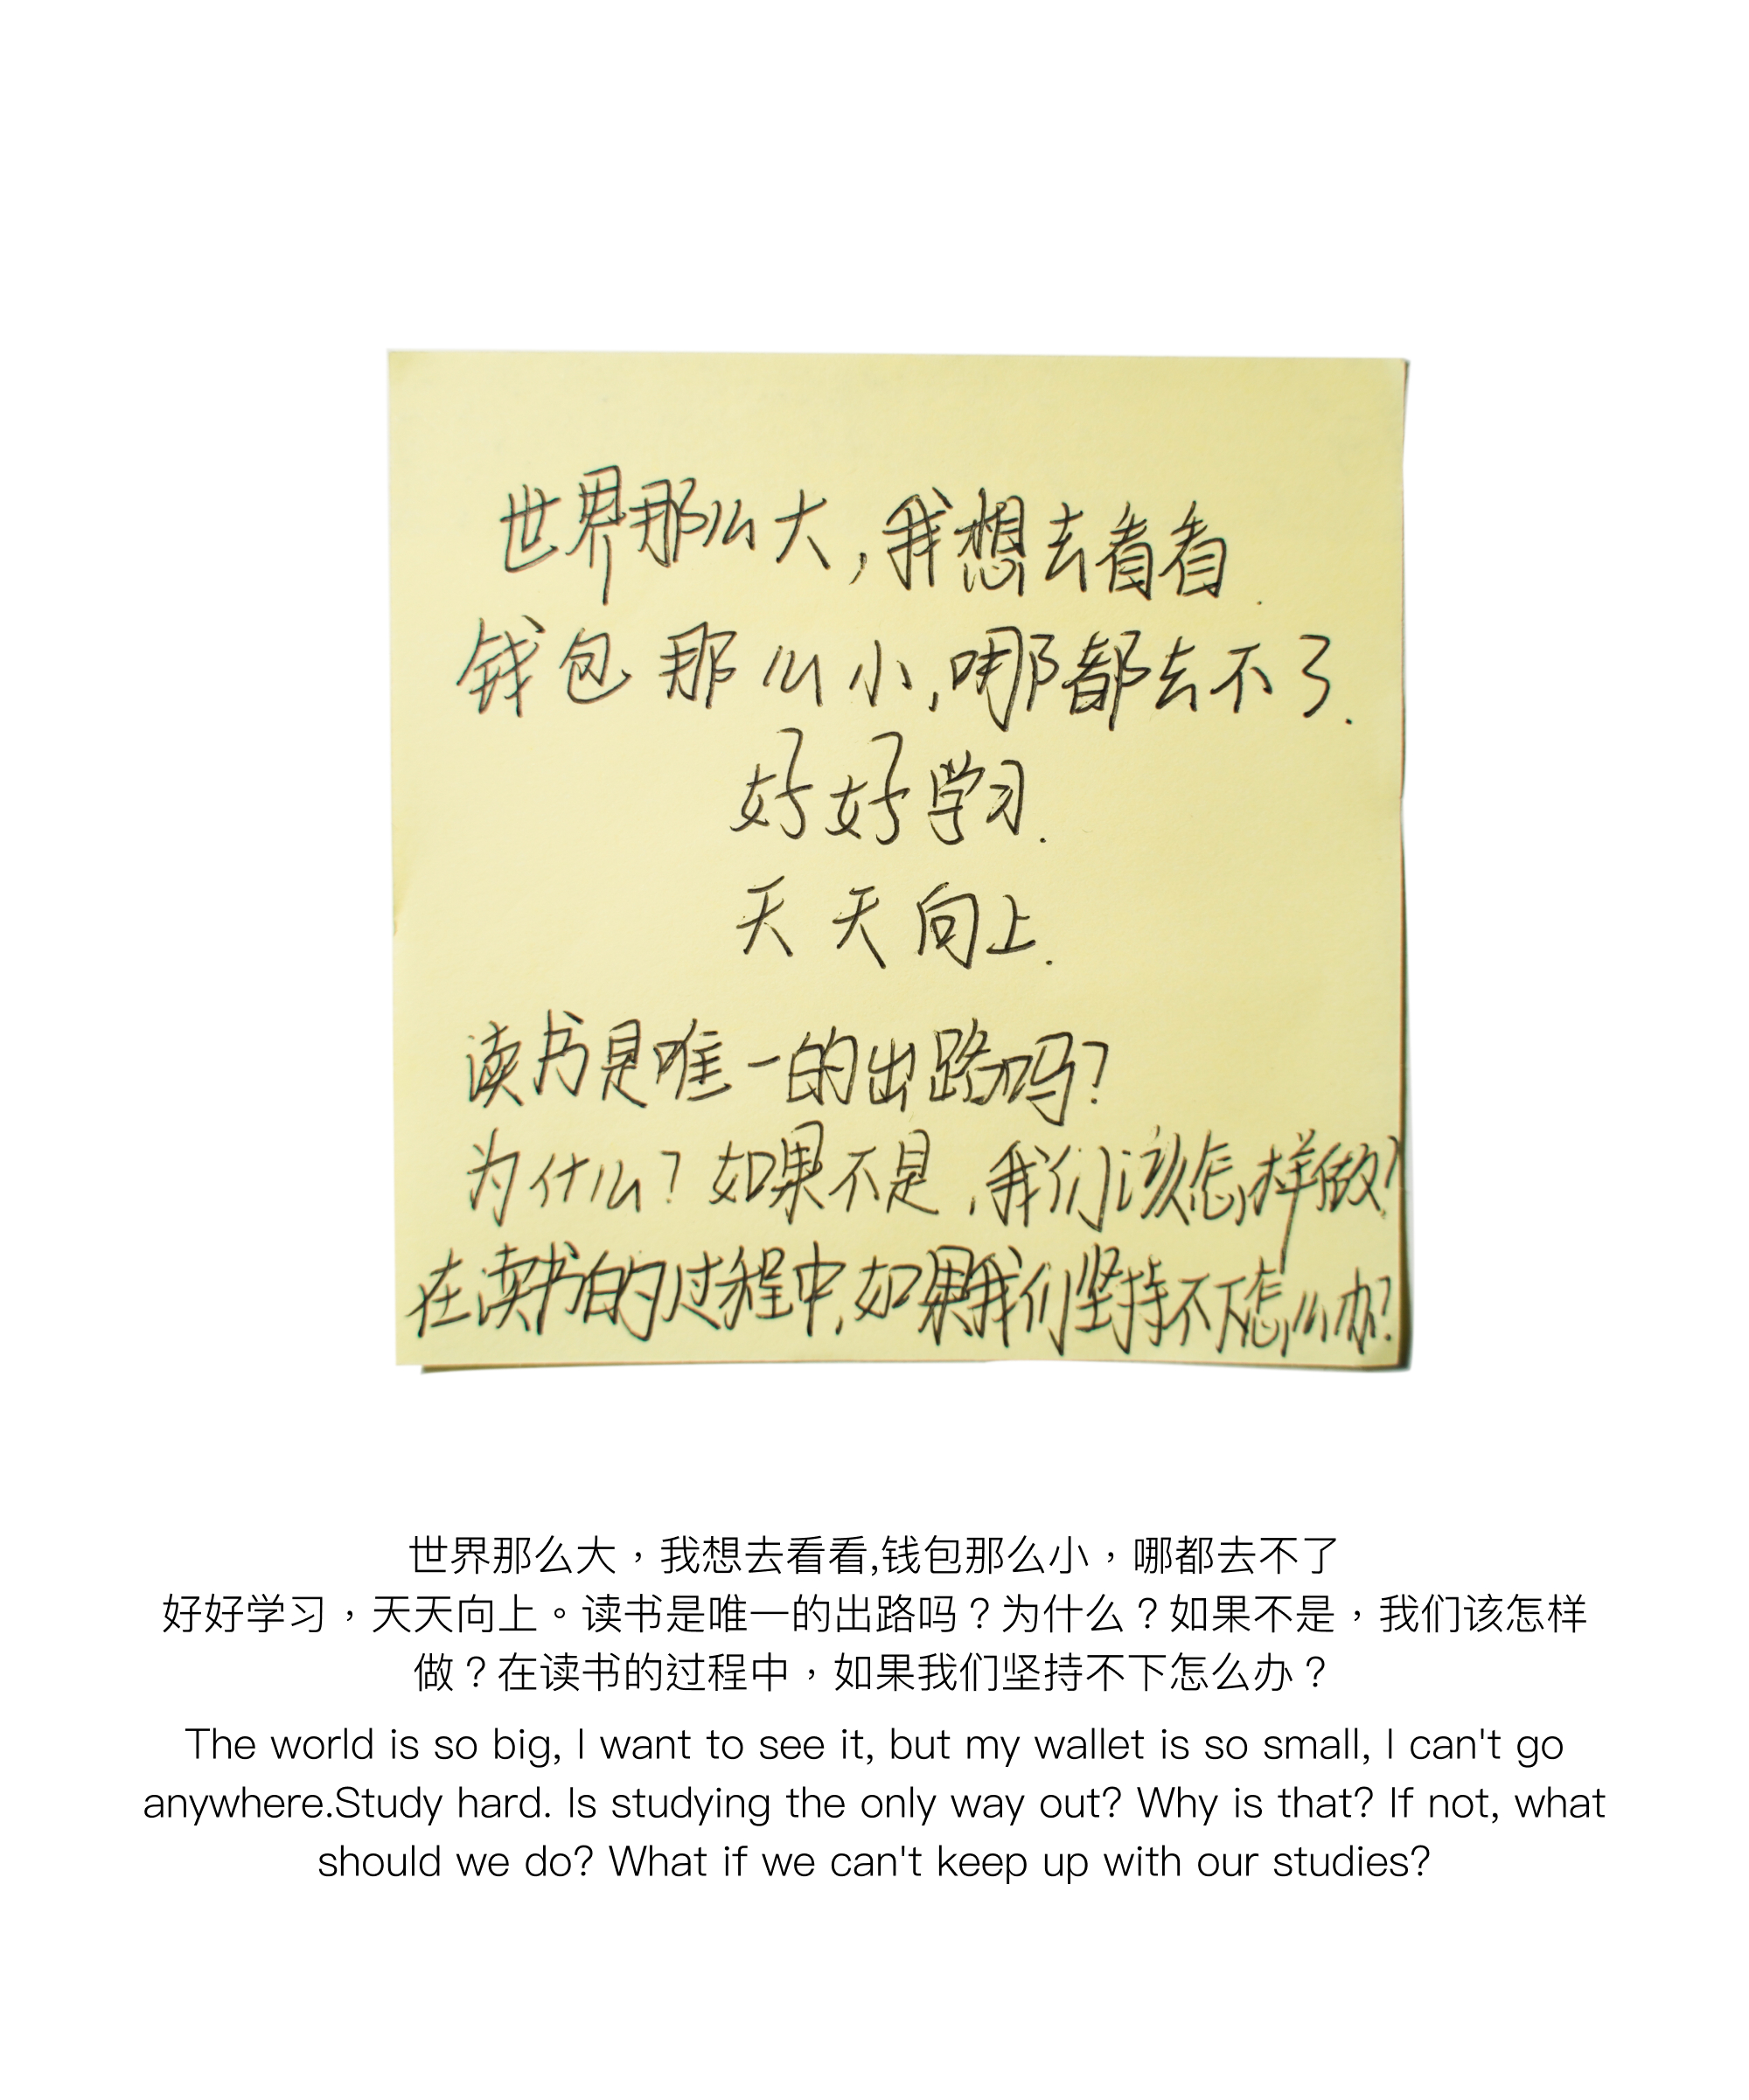 世界那么大,我想去看看.
钱包那么小,哪都去不了.
好好学习.
天天向上.
读书是唯一的出路吗?
为什么?如果不是,我们该怎样做?
在读书的过程中,如果我们坚持不下怎么办?
世界那么大，我想去看看,钱包那么小，哪都去不了
好好学习，天天向上。读书是唯一的出路吗？为什么？如果不是，我们该怎样
做？在读书的过程中，如果我们坚持不下怎么办？
The world is so big, I want to see it, but my wallet is so small, I can't go
anywhere.Study hard. Is studying the only way out? Why is that? If not, what
should we do? What if we can't keep up with our studies?